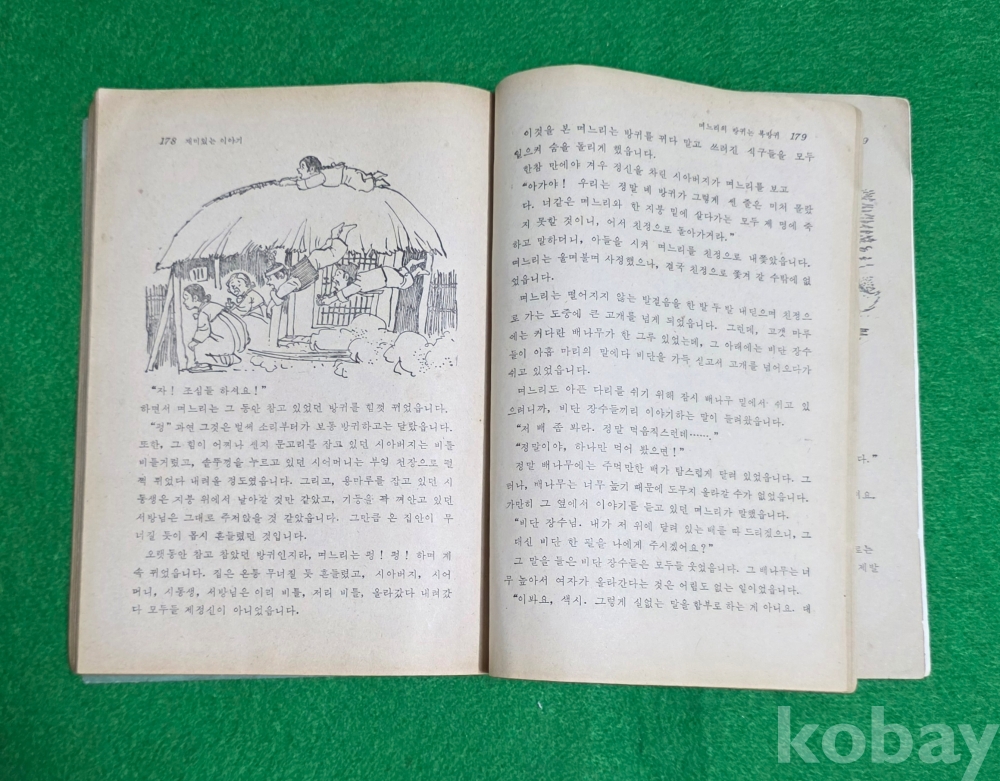 178 재미있는 이야기
"자! 조심들 하셔요!"
하면서 며느리는 그 동안 참고 있었던 방귀를 힘껏 뀌었습니다.
"펑" 과연 그것은 벌써 소리부터가 보통 방귀하고는 달랐습니다.
또한, 그 힘이 어찌나 센지 문고리를 잡고 있던 시아버지는 비틀
비틀거렸고, 솥뚜껑을 누르고 있던 시어머니는 부엌 천장으로 펄
쩍 뛰었다 내려올 정도였습니다. 그리고, 용마루를 잡고 있던 시
동생은 지붕 위에서 날아갈 것만 같았고, 기둥을 꽉 껴안고 있던
서방님은 그대로 주저앉을 것 같았습니다. 그만큼 온 집안이 무
너질 듯이 몹시 흔들렸던 것입니다.
오랫동안 참고 참았던 방귀인지라, 며느리는 펑! 펑! 하며 계
속 뀌었습니다. 집은 온통 무너질 듯 흔들렸고, 시아버지, 시어
머니, 시동생, 서방님은 이리 비틀, 저리 비틀, 올라갔다 내려갔
다 모두들 제정신이 아니었습니다.
며느리의 방귀는 복방귀 179
이것을 본 며느리는 방귀를 뀌다 말고 쓰러진 식구들을 모두
일으켜 숨을 돌리게 했습니다.
한참 만에야 겨우 정신을 차린 시아버지가 며느리를 보고
"아가야! 우리는 정말 네 방귀가 그렇게 센 줄은 미처 몰랐
다. 너같은 며느리와 한 지붕 밑에 살다가는 모두 제 명에 죽
지 못할 것이니, 어서 친정으로 돌아가거라."
하고 말하더니, 아들을 시켜 며느리를 친정으로 내쫓았습니다.
며느리는 울며불며 사정했으나, 결국 친정으로 쫓겨 갈 수밖에 없
었습니다.
며느리는 떨어지지 않는 발걸음을 한 발 두 발 내딛으며 친정으
로 가는 도중에 큰 고개를 넘게 되었습니다. 그런데, 고갯 마루
에는 커다란 배나무가 한 그루 있었는데, 그 아래에는 비단 장수
들이 아홉 마리의 말에다 비단을 가득 싣고서 고개를 넘어오다가
쉬고 있었습니다.
며느리도 아픈 다리를 쉬기 위해 잠시 배나무 밑에서 쉬고 있
으려니까, 비단 장수들끼리 이야기하는 말이 들려왔습니다.
"저 배 좀 봐라. 정말 먹음직스런데……."
"정말이야, 하나만 먹어 봤으면!"
정말 배나무에는 주먹만한 배가 탐스럽게 달려 있었습니다. 그
러나, 배나무는 너무 높기 때문에 도무지 올라갈 수가 없었습니다.
가만히 그 옆에서 이야기를 듣고 있던 며느리가 말했습니다.
"비단 장수님. 내가 저 위에 달려 있는 배를 따 드리겠으니, 그
대신 비단 한 필을 나에게 주시겠어요?"
그 말을 들은 비단 장수들은 모두들 웃었습니다. 그 배나무는 너
무 높아서 여자가 올라간다는 것은 어림도 없는 일이었습니다.
"이봐요, 색시. 그렇게 실없는 말을 함부로 하는 게 아니요. 대
kobay